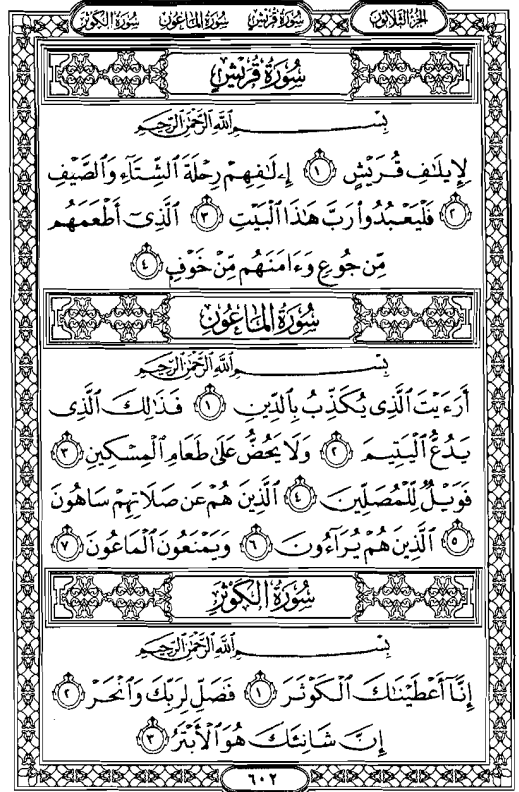 الجزء الثلاثون سورة قريش سورة الماعون سورة الكوثر
سُورَةُ قُرَيْشٍ
بِسْمِ اللَّهِ الرَّحْمَنِ الرَّحِيمِ
لِإِيلَافِ قُرَيْشٍ ١ إِۦلَافِهِمْ رِحْلَةَ الشِّتَاءِ وَالصَّيْفِ
٢ فَلْيَعْبُدُوا رَبَّ هَٰذَا الْبَيْتِ ٣ الَّذِي أَطْعَمَهُم
مِّن جُوعٍ وَءَامَنَهُم مِّنْ خَوْفٍ ٤
سُورَةُ المَاعُونِ
بِسْمِ اللَّهِ الرَّحْمَنِ الرَّحِيمِ
أَرَءَيْتَ الَّذِي يُكَذِّبُ بِالدِّينِ ١ فَذَٰلِكَ الَّذِي
يَدُعُّ الْيَتِيمَ ٢ وَلَا يَحُضُّ عَلَىٰ طَعَامِ الْمِسْكِينِ ٣
فَوَيْلٌ لِّلْمُصَلِّينَ ٤ الَّذِينَ هُمْ عَن صَلَاتِهِمْ سَاهُونَ
٥ الَّذِينَ هُمْ يُرَآءُونَ ٦ وَيَمْنَعُونَ الْمَاعُونَ ٧
سُورَةُ الكَوْثَرِ
بِسْمِ اللَّهِ الرَّحْمَنِ الرَّحِيمِ
إِنَّا أَعْطَيْنَاكَ الْكَوْثَرَ ١ فَصَلِّ لِرَبِّكَ وَانْحَرْ ٢
إِنَّ شَانِئَكَ هُوَ الْأَبْتَرُ ٣
٦٠٢